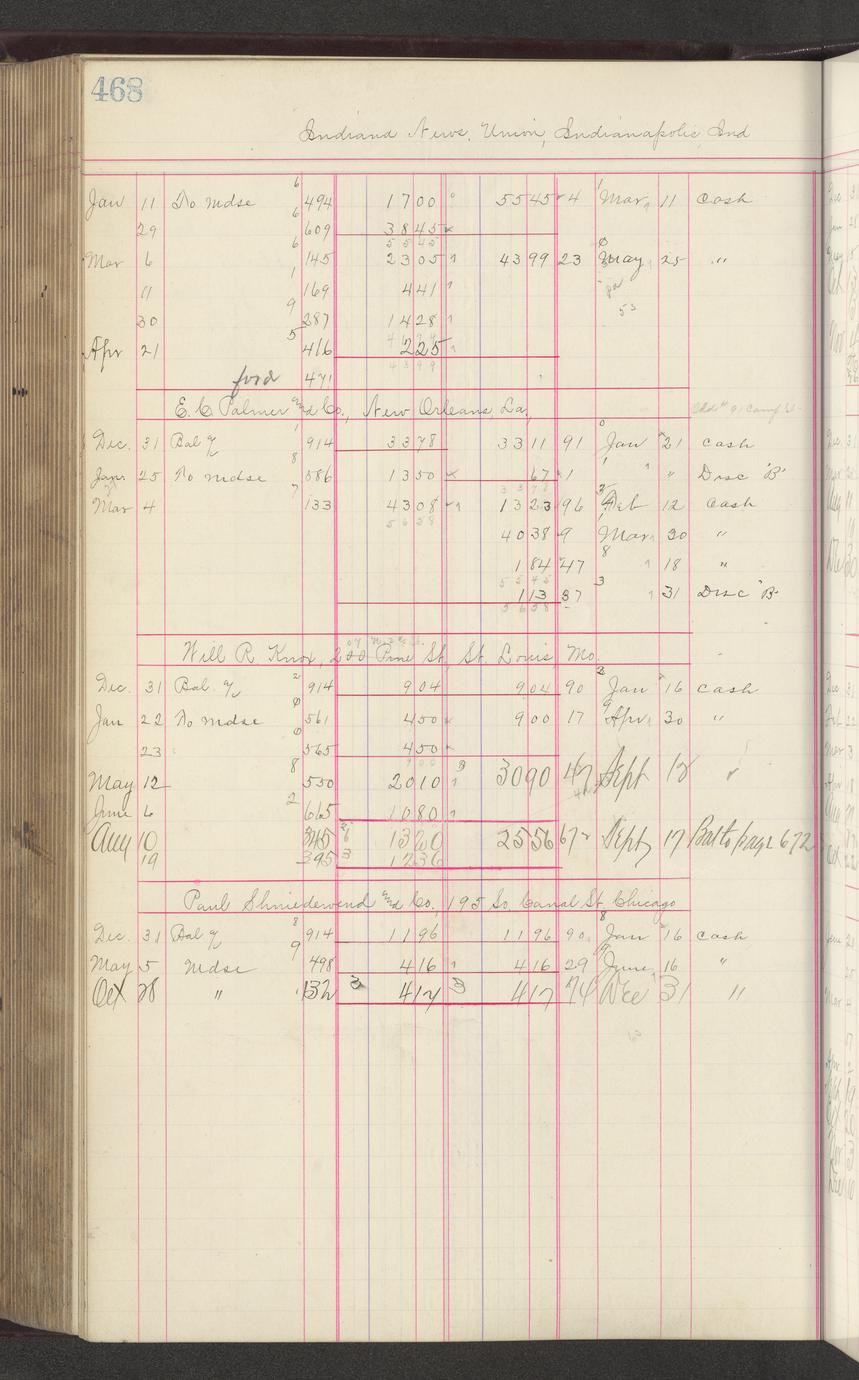 468
Indiana News. Union, Indianapolis, Ind
6
Jan 11 To Mdse 494 1700 5545 4 Mar 11 Cash
6
29 609 3845
5545
6
Mar 6 145 2305 4399 23 May 25 "
1
11 169 441
9
30 287 1428 53
5
Apr 21 416 225
4399
ford 471
E. C. Palmer and Co., New Orleans, La,
Dec. 31 Bal 914 3378 3311 91 Jan 21 cash
8
Jan. 25 To mdse 586 1350 67 1 " " Disc "B"
7 3378
Mar 4 133 4308 1323 96 Feb 12 Cash
5658
4038 9 Mar 30 "
184 47 " 18 "
5545
113 37 " 31 Disc "B"
5658
Will R Knox, 200 Pine St. St. Louis Mo.
2
Dec. 31 Bal. 914 904 904 90 Jan 16 cash
Jan 22 To mdse 561 450 900 17 Apr 30 "
23 565 450
8 900
May 12 550 2010 3090 47 Sept 12 "
2
June 6 665 1080
Aug 10 345 1320 2556 67 Sept 17 Bal to page 672
19 395 1236
Paul Shniedewend and Co., 195 So Canal St. Chicago
8
Dec. 31 Bal 914 1196 1196 90 Jan 16 cash
9
May 5 Mdse 498 416 416 29 June 16 "
Oct 28 " 132 417 417 74 Dec 31 "